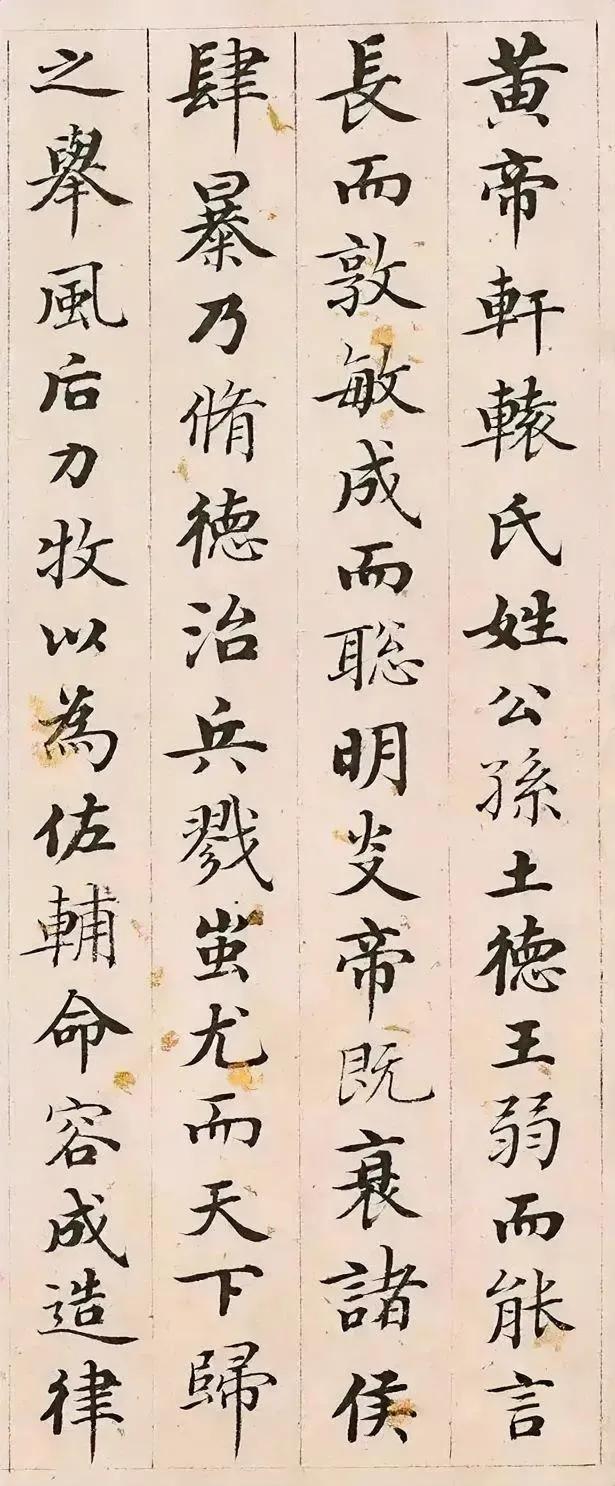 黃帝軒轅氏姓公孫土德王弱而能言
長而敦敏成而聡明炎帝既衰諸侯
肆暴乃脩德治兵戮蚩尤而天下歸
之舉風后力牧以為佐輔命容成造律